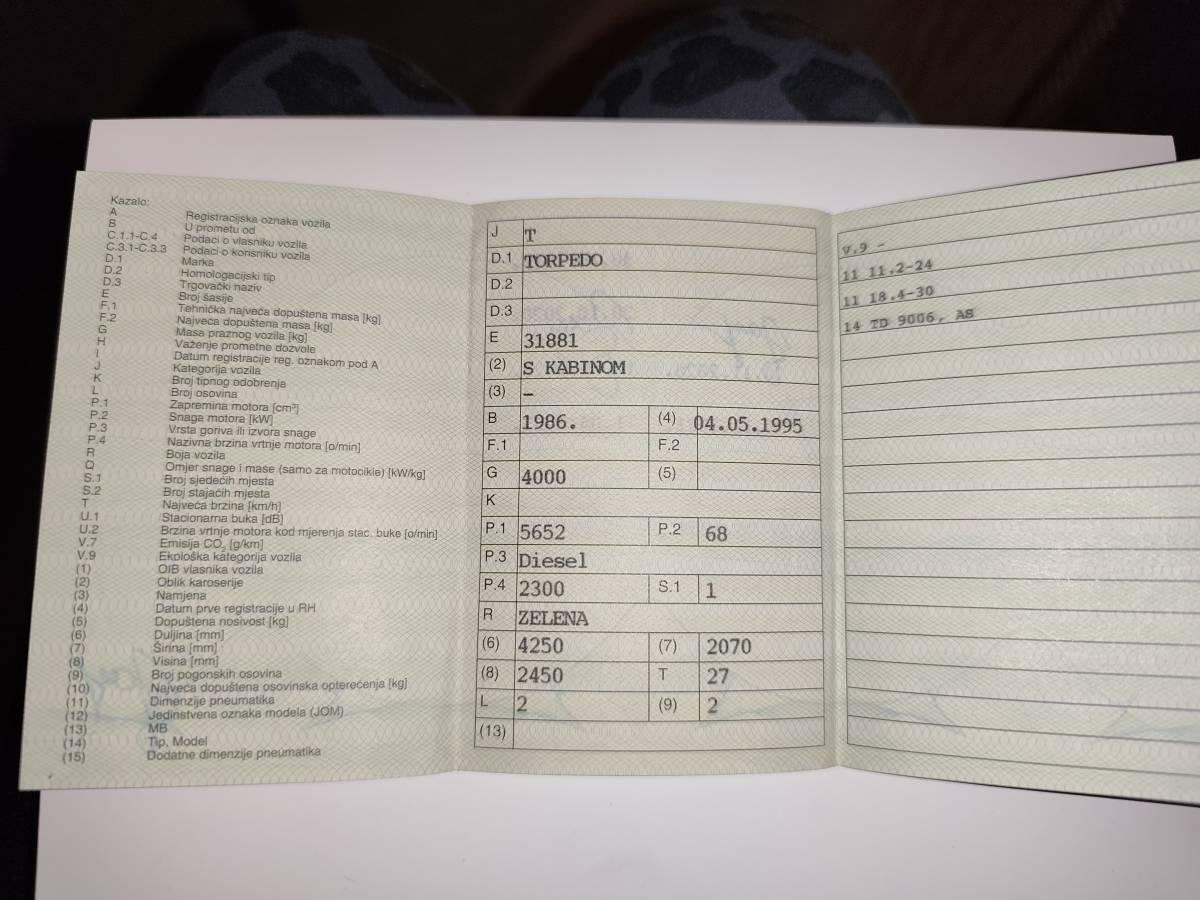 Kazalo:
A Registracijska oznaka vozila
B U prometu od
C.1.1-C.4 Podaci o vlasniku vozila
C.3.1-C.3.3 Podaci o korisniku vozila
D.1 Marka
D.2 Homologacijski tip
D.3 Trgovački naziv
E Broj šasije
F.1 Tehnička najveća dopuštena masa [kg]
F.2 Najveća dopuštena masa [kg]
G Masa praznog vozila [kg]
H Važenje prometne dozvole
I Datum registracije reg. oznakom pod A
J Kategorija vozila
K Broj tipnog odobrenja
L Broj osovina
P.1 Zapremina motora [cm³]
P.2 Snaga motora [kW]
P.3 Vrsta goriva ili izvora snage
P.4 Nazivna brzina vrtnje motora [o/min]
R Boja vozila
Q Omjer snage i mase (samo za motocikle) [kW/kg]
S.1 Broj sjedećih mjesta
S.2 Broj stajaćih mjesta
T Najveća brzina [km/h]
U.1 Stacionarna buka [dB]
U.2 Brzina vrtnje motora kod mjerenja stac. buke [o/min]
V.7 Emisija CO₂ [g/km]
V.9 Ekološka kategorija vozila
(1) OIB vlasnika vozila
(2) Oblik karoserije
(3) Namjena
(4) Datum prve registracije u RH
(5) Dopuštena nosivost [kg]
(6) Duljina [mm]
(7) Širina [mm]
(8) Visina [mm]
(9) Broj pogonskih osovina
(10) Najveća dopuštena osovinska opterećenja [kg]
(11) Dimenzije pneumatika
(12) Jedinstvena oznaka modela (JOM)
(13) MB
(14) Tip, Model
(15) Dodatne dimenzije pneumatika
J T
D.1 TORPEDO
D.2
D.3
E 31881
(2) S KABINOM
(3) –
B 1986. (4) 04.05.1995
F.1 F.2
G 4000 (5)
K
P.1 5652 P.2 68
P.3 Diesel
P.4 2300 S.1 1
R ZELENA
(6) 4250 (7) 2070
(8) 2450 T 27
L 2 (9) 2
(13)
V.9 -
11 11.2-24
11 18.4-30
14 TD 9006, AS